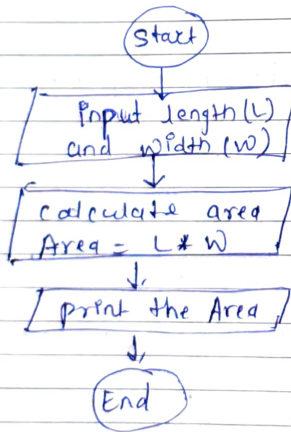 Start
Input length (L)
and width (W)
calculate area
Area = L * W
print the Area
End